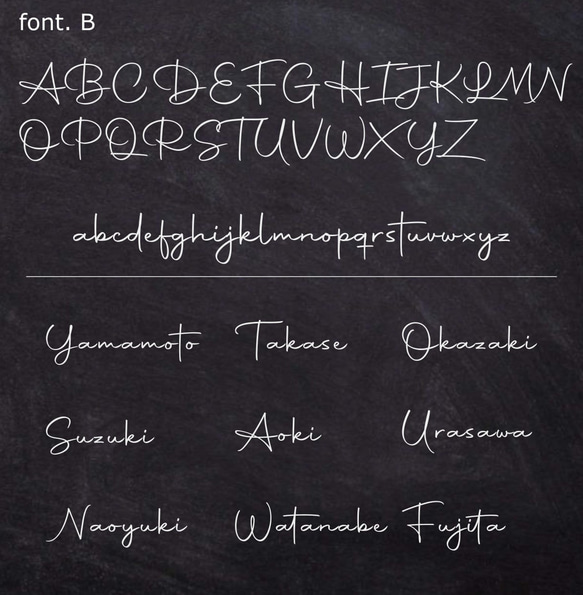 font. B
ABCDEFGHIJKLMN
OPQRSTUVWXYZ
abcdefghijklmnopqrstuvwxyz
Yamamoto Takase Okazaki
Suzuki Aoki Urasawa
Naoyuki Watanabe Fujita